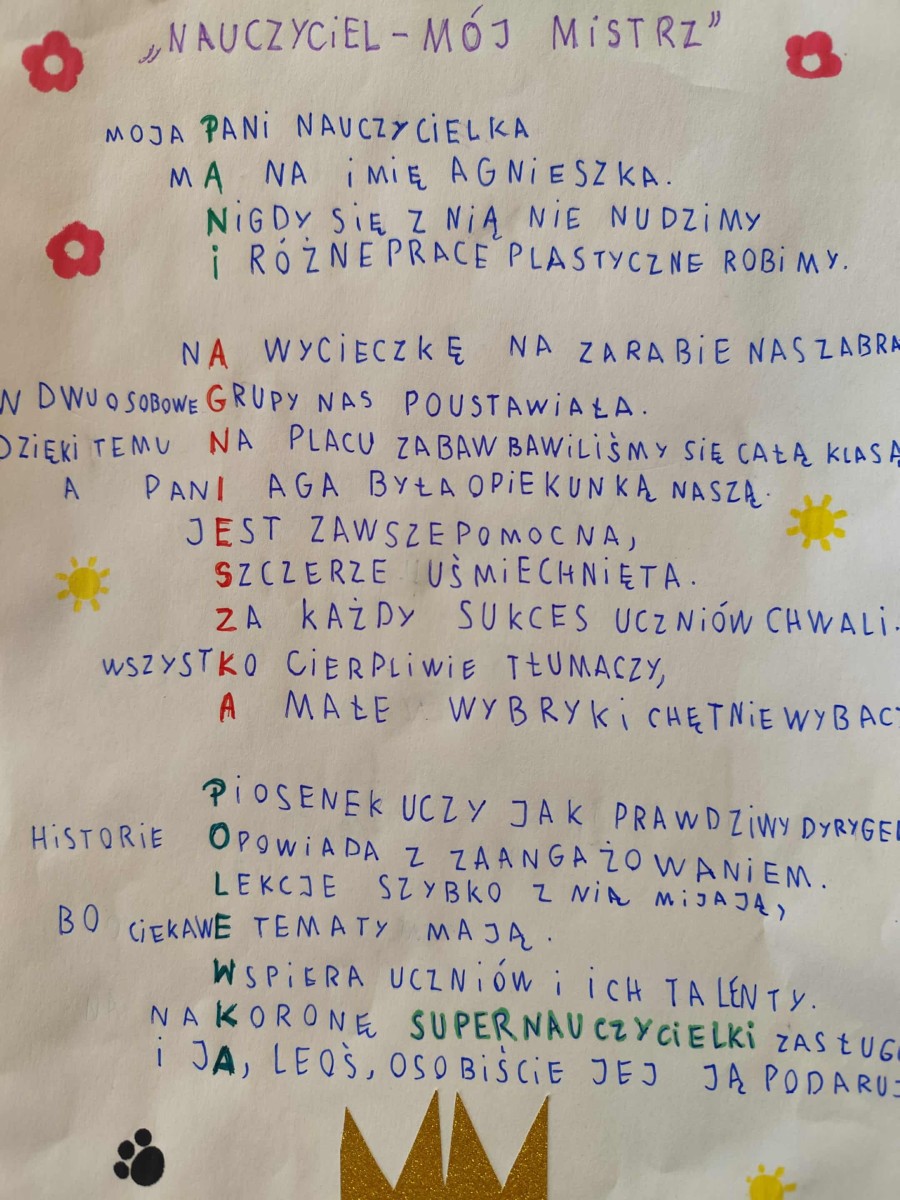 „NAUCZYCIEL – MÓJ MISTRZ”
MOJA PANI NAUCZYCIELKA
MA NA IMIĘ AGNIESZKA.
NIGDY SIĘ Z NIĄ NIE NUDZIMY
I RÓŻNE PRACE PLASTYCZNE ROBIMY.
NA WYCIECZKĘ NA ZARABIE NAS ZABRA
W DWUOSOBOWE GRUPY NAS POUSTAWIAŁA.
DZIĘKI TEMU NA PLACU ZABAW BAWILIŚMY SIĘ CAŁĄ KLASĄ
A PANI AGA BYŁA OPIEKUNKĄ NASZĄ.
JEST ZAWSZE POMOCNA,
SZCZERZE UŚMIECHNIĘTA.
ZA KAŻDY SUKCES UCZNIÓW CHWALI.
WSZYSTKO CIERPLIWIE TŁUMACZY,
A MAŁE WYBRYKI CHĘTNIE WYBACZ
PIOSENEK UCZY JAK PRAWDZIWY DYRYGE
HISTORIE OPOWIADA Z ZAANGAŻOWANIEM.
LEKCJE SZYBKO Z NIĄ MIJAJĄ,
BO CIEKAWE TEMATY MAJĄ.
WSPIERA UCZNIÓW I ICH TALENTY.
NA KORONĘ SUPERNAUCZYCIELKI ZASŁUG
I JA, LEOŚ, OSOBIŚCIE JEJ JĄ PODARUJ